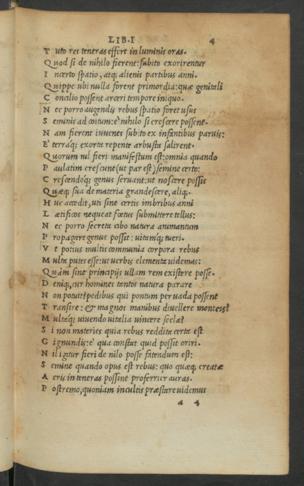 LIB. I 4
T uto res teneras effert in luminis oras.
Q uod si de nihilo fierent: subito exorirentur
I ncerto spatio, atq; alienis partibus anni.
Q uippe ubi nulla forent primordia: quæ genitali
C oncilio possent arceri tempore iniquo.
N ec porro augendis rebus spatio foret usus
S eminis ad coitum: è nihilo si crescere possent.
N am fierent iuuenes subito ex infantibus paruis:
E terraq; exorta repente arbusta salirent.
Q uorum nil fieri manifestum est: omnia quando
P aulatim crescunt (ut par est) semine certo:
C rescendoq; genus seruant: ut noscere possis
Q uæq; sua de materia grandescere, aliq.
H uc accedit, uti sine certis imbribus anni
L ætificos nequeat fœtus submittere tellus:
N ec porro secreta cibo natura animantum
P ropagare genus possit: uitamq; tueri.
V t potius multis communia corpora rebus
M ulta putes esse: ut uerbis elementa uidemus:
Q uàm sine principijs ullam rem existere posse.
D eniq; cur homines tantos natura parare
N on potuit? pedibus qui pontum per uada possent
T ransire: & magnos manibus diuellere montes?
M ultaq; uiuendo uitalia uincere secla?
S i non materies quia rebus reddita certa est
G ignundis: è qua constat quid possit oriri.
N il igitur fieri de nilo posse fatendum est:
S emine quando opus est rebus: quo quæq; creatæ
A eris in teneras possint proferrier auras.
P ostremo, quoniam incultis præstare uidemus
a 4